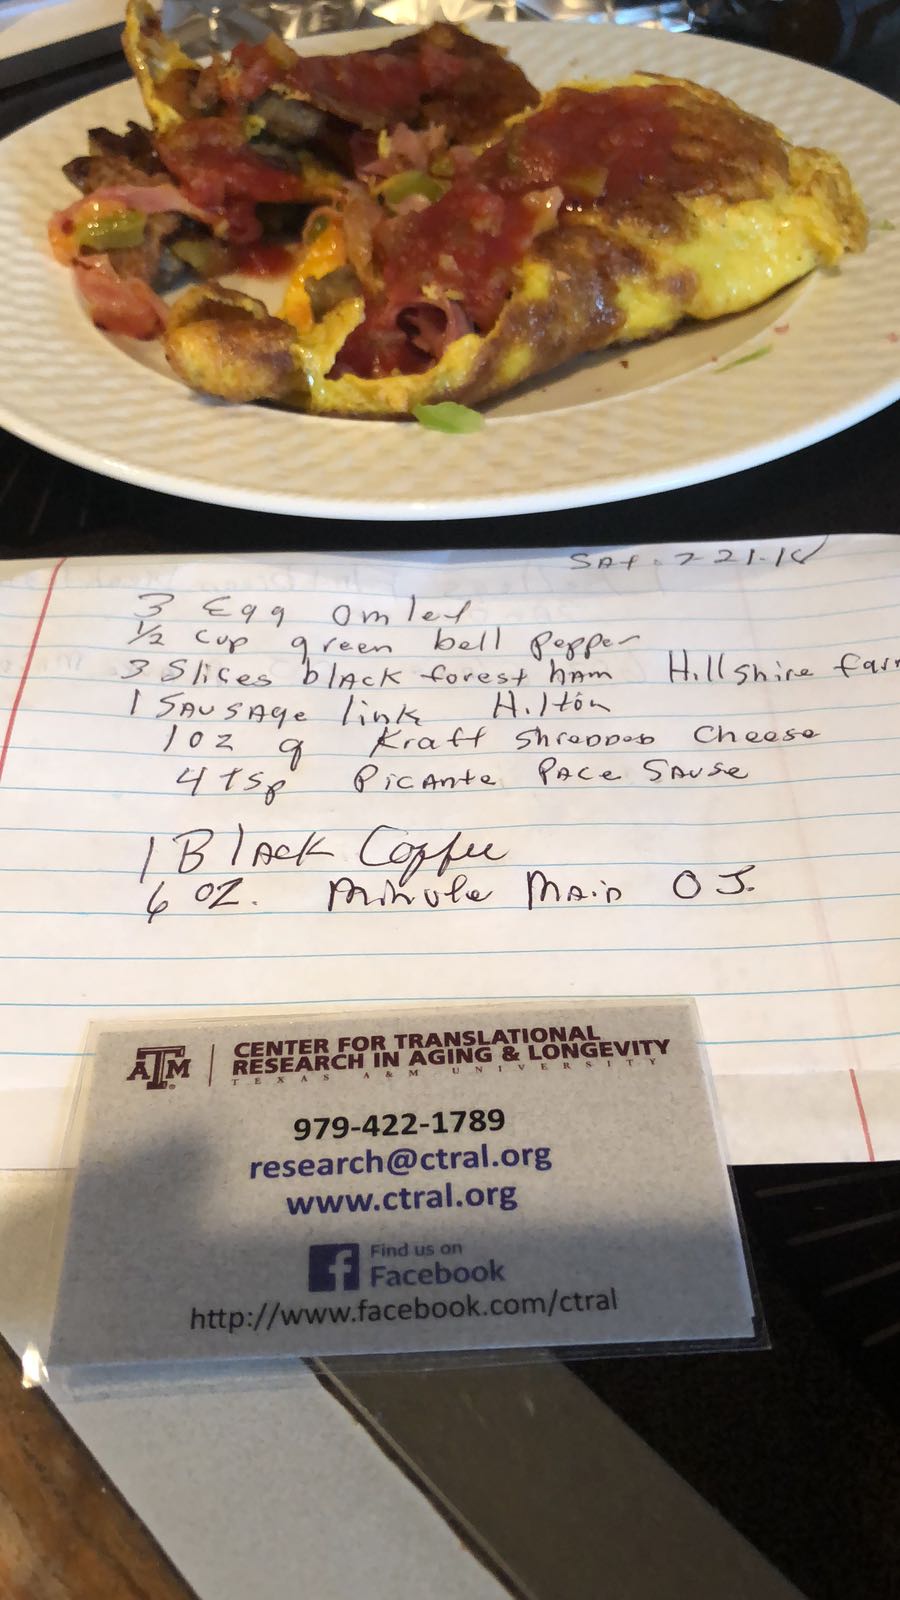 SAt. 7-21-18
3 Egg omlet
1/2 cup green bell pepper
3 Slices black forest ham Hillshire farm
1 SAUSAge link Hilton
1 oz of Kraft Shredded Cheese
4 tsp PicAnte PACe SAuse
1 Black Coffee
6 OZ. Minute MAid O J.
ATM
CENTER FOR TRANSLATIONAL
RESEARCH IN AGING & LONGEVITY
TEXAS A&M UNIVERSITY
979-422-1789
research@ctral.org
www.ctral.org
f
Find us on
Facebook
http://www.facebook.com/ctral